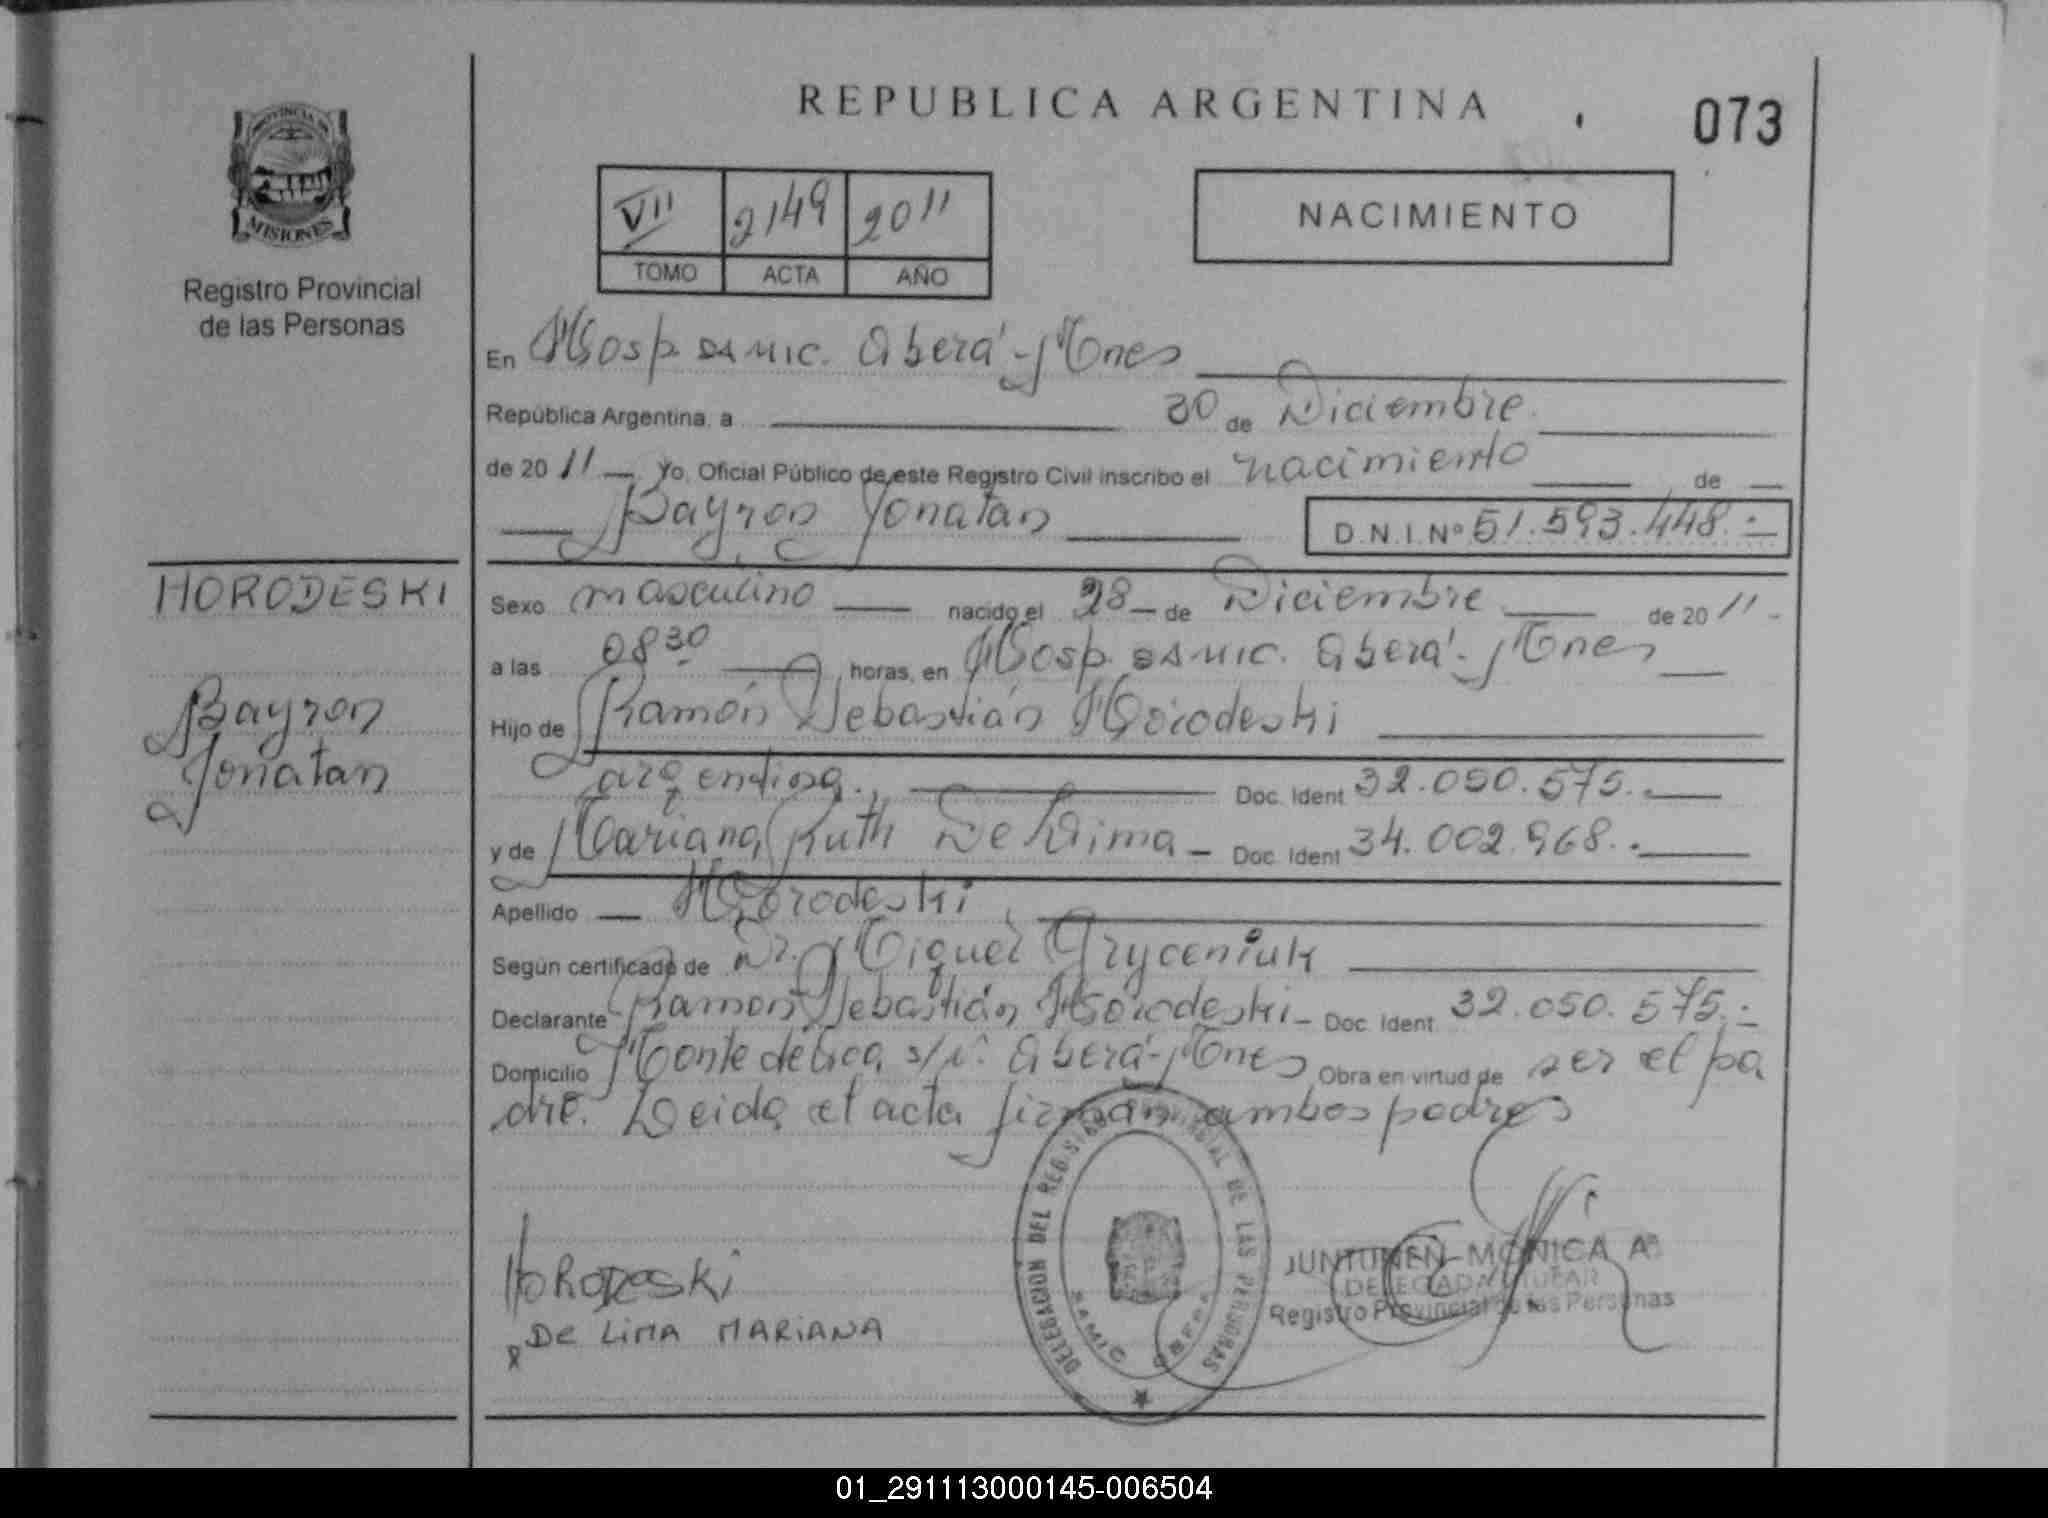 REPUBLICA ARGENTINA
073
PROVINCIA DE
MISIONES
Registro Provincial
de las Personas
VII 2149 2011
TOMO ACTA AÑO
NACIMIENTO
En Hosp. SAMIC. Oberá - Mnes
República Argentina, a 30 de Diciembre
de 2011 Yo, Oficial Público de este Registro Civil inscribo el nacimiento de
Bayron Jonatan
D.N.I.Nº 51.593.448.-
HORODESKI
Bayron
Jonatan
Sexo masculino nacido el 28 de Diciembre de 2011-
a las 08 30 horas, en Hosp. SAMIC. Oberá - Mnes
Hijo de Ramón Sebastián Horodeski
argentina. Doc. Ident 32.050.575.-
y de Mariana Ruth De Lima - Doc. Ident 34.002.968.-
Apellido Horodeski
Según certificado de Dr. Miguel Gryceniuk
Declarante Ramón Sebastián Horodeski - Doc. Ident 32.050.575.-
Domicilio Monte de Oca s/nº Oberá - Mnes Obra en virtud de ser el pa
dre. Leída el acta firman ambos padres
HoRoDeSki
De LiMA MARiANA
DELEGACION DEL REGISTRO PROVINCIAL DE LAS PERSONAS
SAMIC OBERA
JUNTUNEN MONICA Aª
DELEGADA TITULAR
Registro Provincial de las Personas
01_291113000145-006504